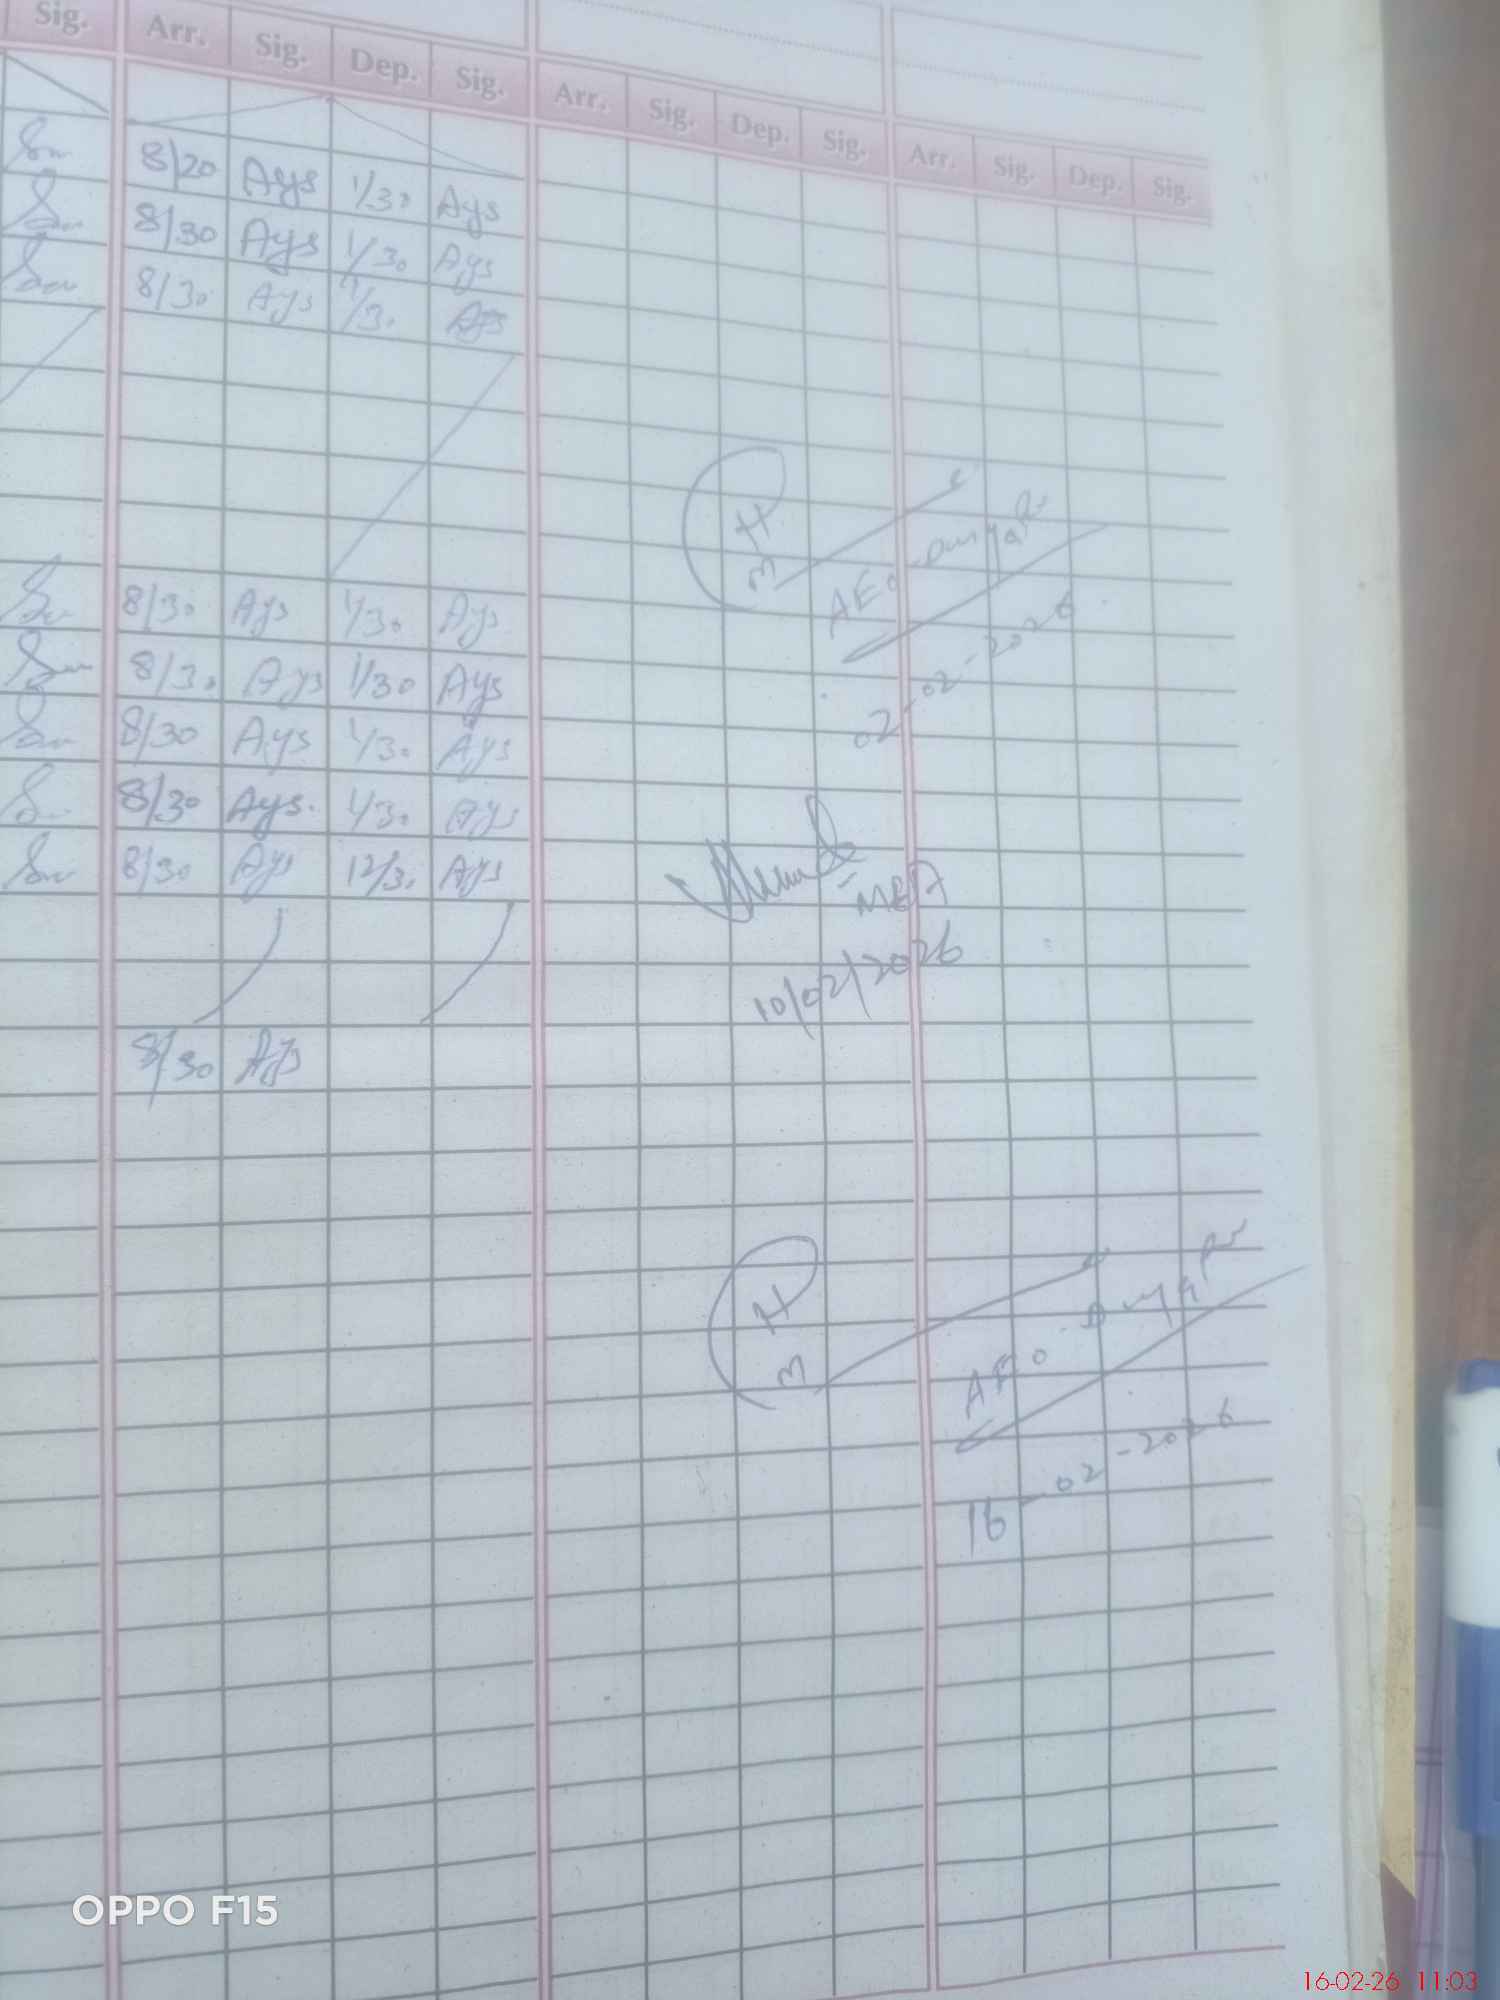 Sig. Arr. Sig. Dep. Sig. Arr. Sig. Dep. Sig. Arr. Sig. Dep. Sig.
8/20 Ays 1/30 Ays
8/30 Ays 1/30 Ays
8/30 Ays 1/30 Ays
H
M
AEO
02-02-2026
8/30 Ays 1/30 Ays
8/30 Ays 1/30 Ays
8/30 Ays 1/30 Ays
8/30 Ays. 1/30 Ays
8/30 Ays 12/30 Ays
MEA
10/02/2026
8/30 Ays
H
M
AEO
16-02-2026
OPPO F15
16-02-26 11:03